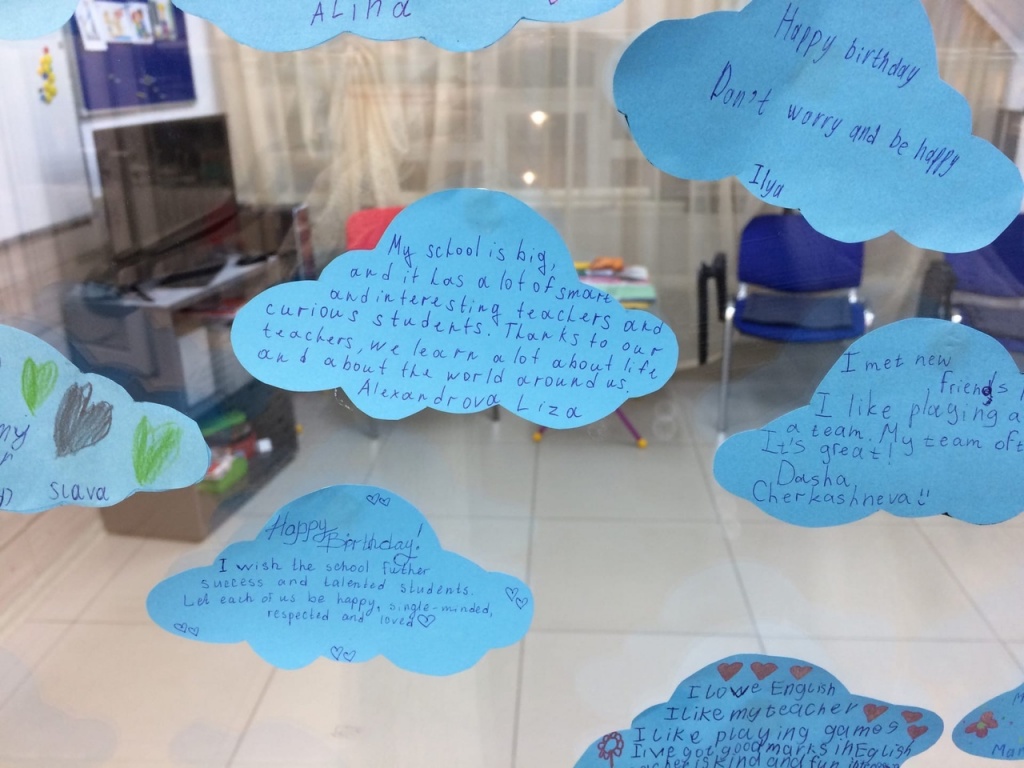 ALINA
Happy birthday
Don't worry and be happy
Ilya
My school is big,
and it has a lot of smart
and interesting teachers and
curious students. Thanks to our
teachers, we learn a lot about life
and about the world around us.
Alexandrova Liza
my
Slava
I met new
friends
I like playing a
a team. My team oft
It's great!
Dasha
Cherkashneva!!
Happy
Birthday!
I wish the school futher
success and talented students.
Let each of us be happy, single-minded,
respected and loved
I lowe English
I like my teacher
I like playing games
I've got good marks in English
is kind and fun